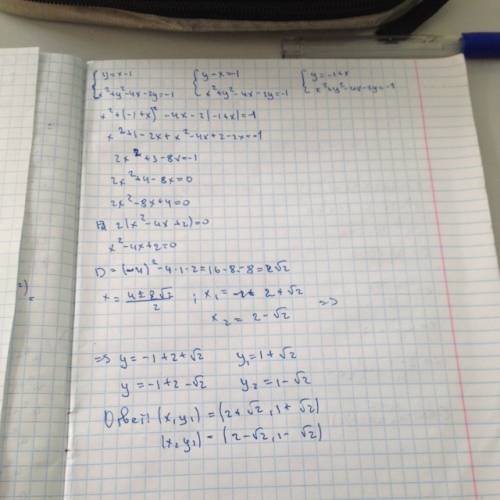 {y=x-1 {y-x=-1 {y=-1+x
{x²+y²-4x-2y=-1 {x²+y²-4x-2y=-1 {x²+y²-4x-2y=-1
x²+(-1+x)²-4x-2(-1+x)=-1
x²+1-2x+x²-4x+2-2x=-1
2x²+3-8x=-1
2x²+4-8x=0
2x²-8x+4=0
2(x²-4x+2)=0
x²-4x+2=0
D=(-4)²-4·1·2=16-8=8=2√2
x=(4±2√2)/2 ; x₁=2+√2
x₂=2-√2 =>
=> y=-1+2+√2 y₁=1+√2
y=-1+2-√2 y₂=1-√2
Ответ: (x₁y₁)=(2+√2, 1+√2)
(x₂y₂)=(2-√2, 1-√2)